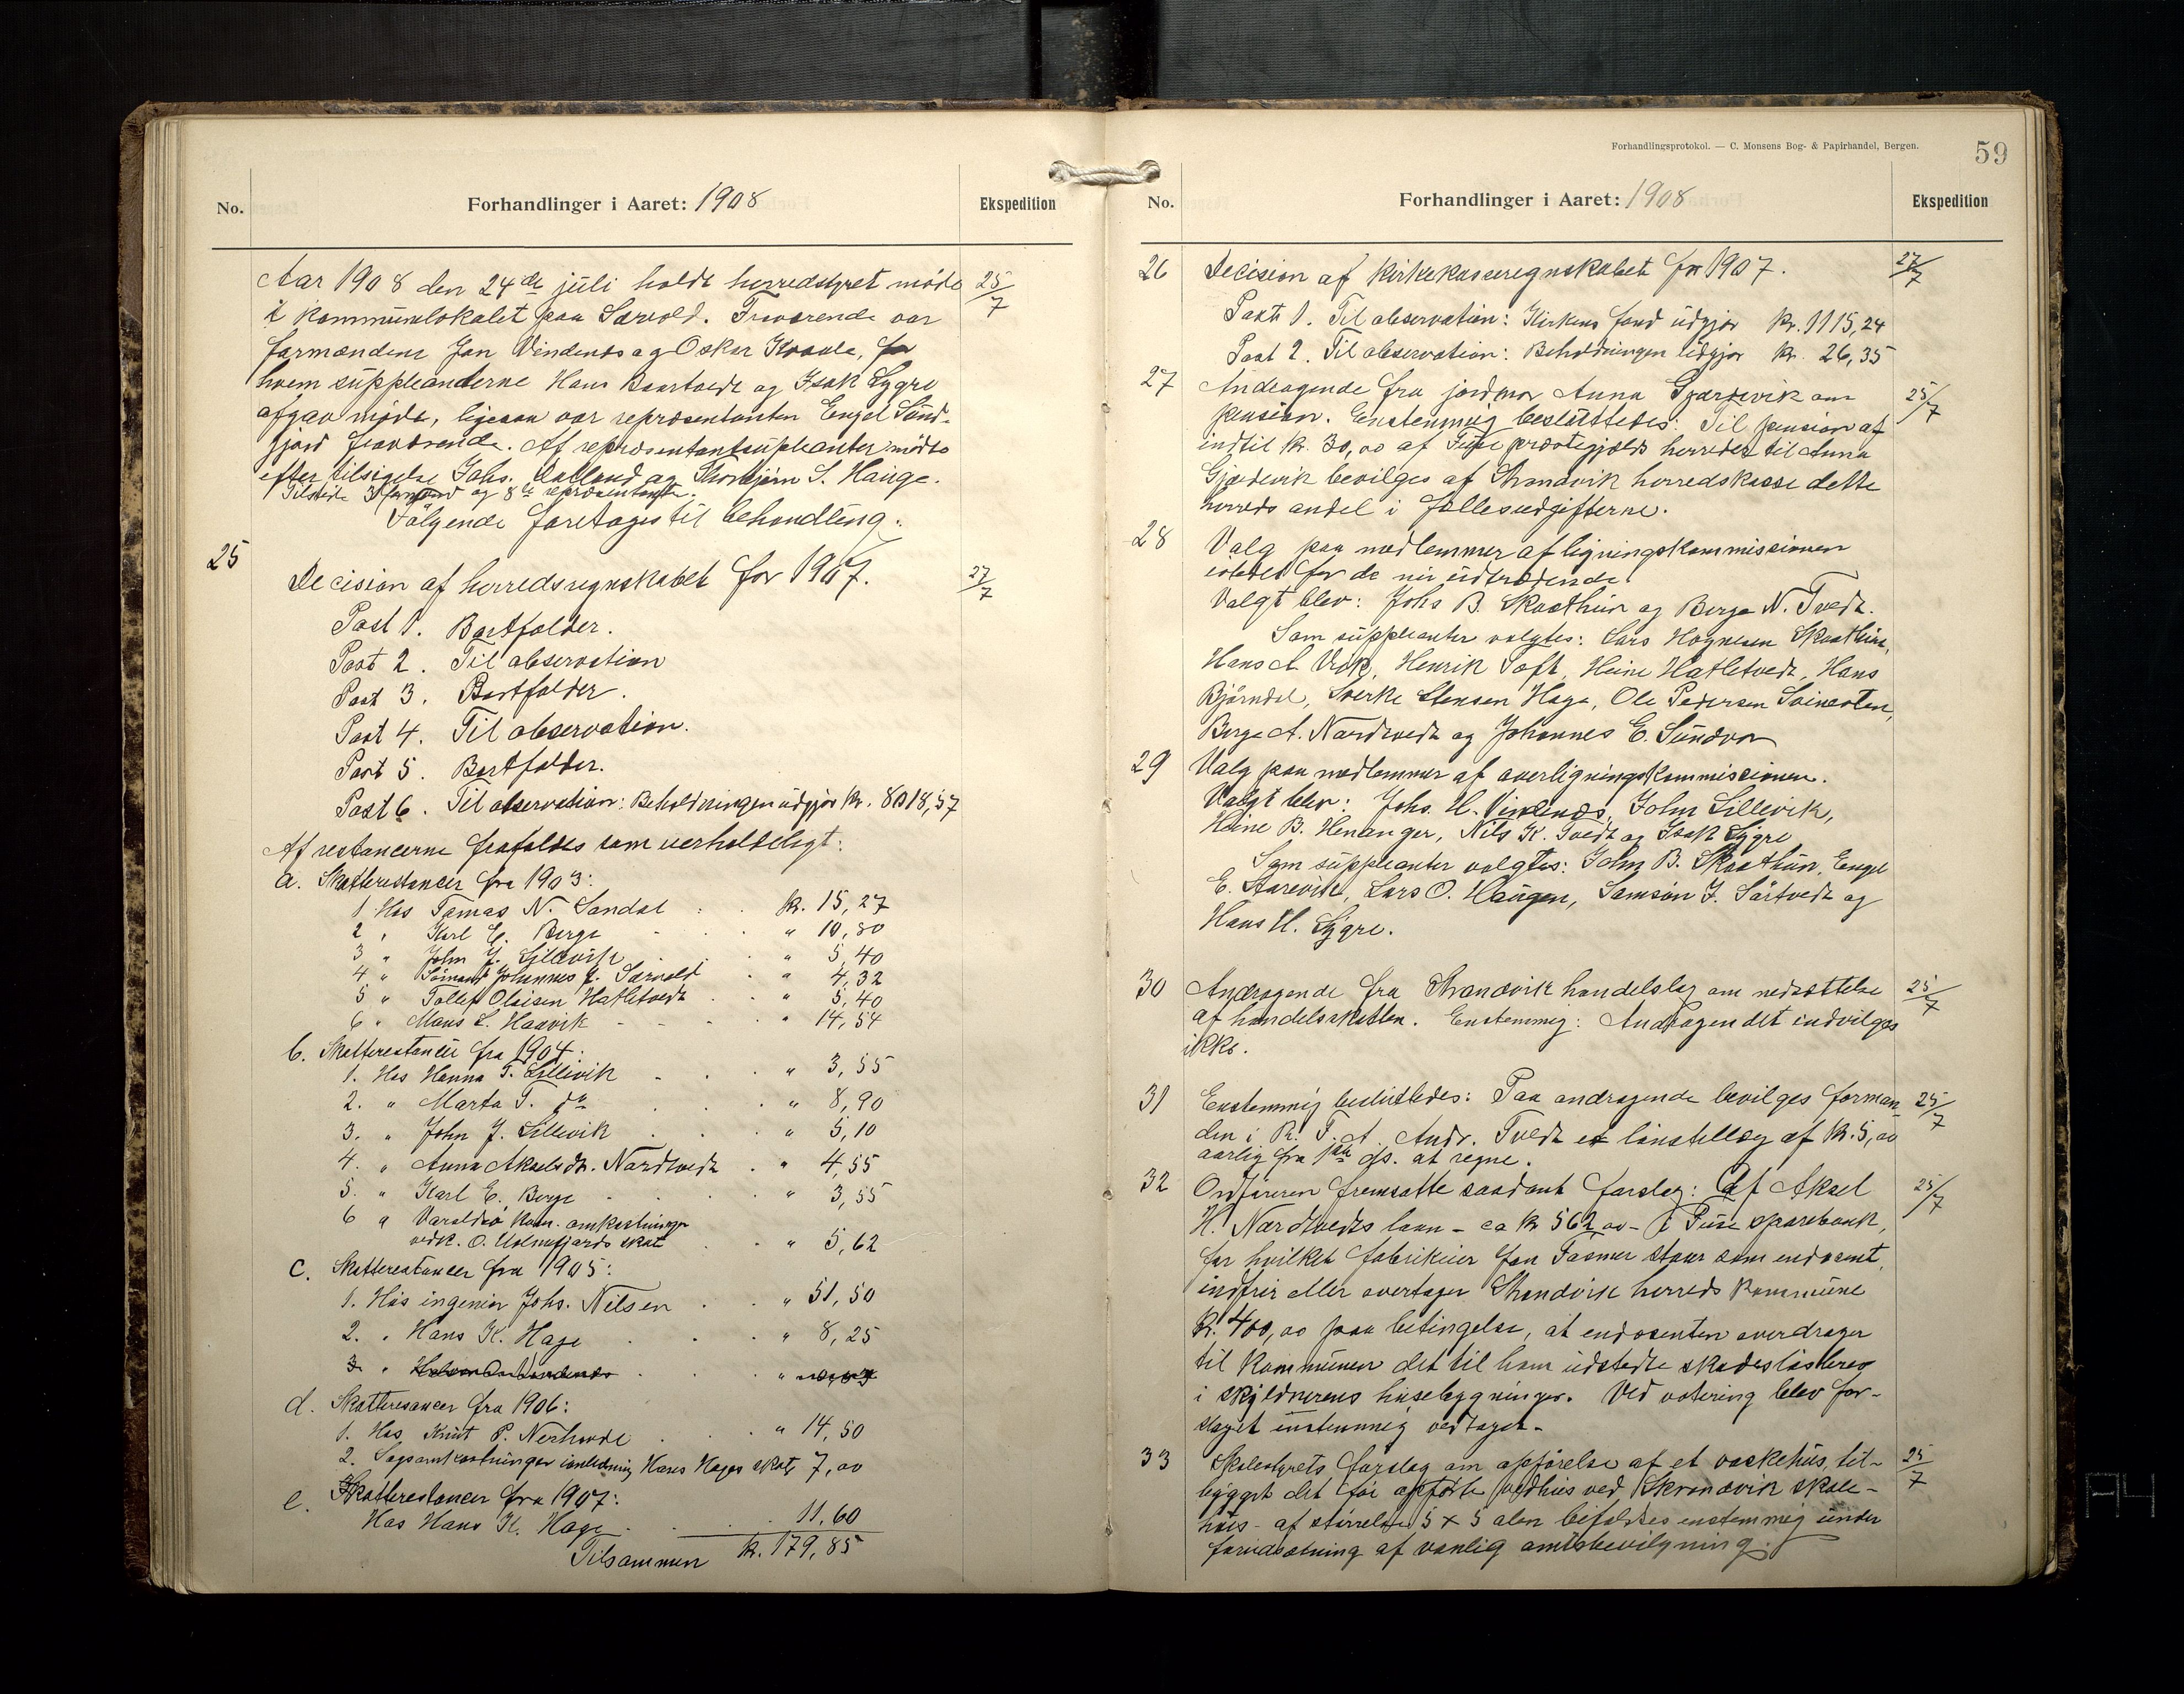 Forhandlingsprotokol. — C. Monsens Bog- & Papirhandel, Bergen.
59
No.
Forhandlinger i Aaret: 1908
Ekspedition
Aar 1908 den 24de juli holdt herredstyret møde 25/7
i kommunelokalet paa Særvold. Fraværende var
formændene Jan Vindenes og Oskar Kvaale, for
hvem suppleanterne Hans Baartvedt og Isak Lygre
afgav møde, ligesaa var repræsentanten Engel Sund-
fjord fraværende. Af repræsentantsupleanter mødte
efter tilsigelse Johs. Dalland og Thorbjørn S. Hauge.
Tilstede 3 formænd og 8te repræsentanter.
Følgende foretages til behandling:
25
Decision af herredsregnskabet for 1907. 27/7
Post 1. Bortfalder.
Post 2. Til observation
Post 3. Bortfalder.
Post 4. Til observation.
Post 5. Bortfalder.
Post 6. Til observation: Beholdningen udgjør kr. 8018,57
Af restancerne frafaldes som uerholdeligt:
a. Skatterestancer fra 1903:
1 Hos Tomas N. Sandal kr. 15,27
2 " Karl E. Berge " 10,80
3 " John J. Lillevik " 5,40
4 " Sømand Johannes J. Særvold " 4,32
5 " Tollef Olsisen Hatletvedt " 5,40
6 " Mons L. Haavik " 14,54
b. Skatterestancer fra 1904:
1. Hos Hanna T. Lillevik " 3,55
2. " Marta T. do " 8,90
3. " John J. Lillevik " 5,10
4. " Anna Akselsdt. Nordtvedt " 4,55
5. " Karl E. Berge " 3,55
6 " Varaldsø kom. omkostninger
vedk. O. Holmefjords skat " 5,62
c. Skatterestancer fra 1905:
1. Hos ingeniør Johs. Nilsen " 51,50
2. " Hans K. Hage " 8,25
3 "
d. Skatteresancer fra 1906:
1. Hos Knut P. Nerhovde " 14,50
2. Sagsomkostninger i anledning Hans Hages skat 7,00
e. Skatterestancer fra 1907:
Hos Hans K. Hage 11,60
Tilsammen kr. 179,85
No.
Forhandlinger i Aaret: 1908
Ekspedition
26 Decision af kirkekasseregnskabet for 1907. 27/7
Post 1. Til observation: Kirkens fond udgjør kr. 1115,24
Post 2. Til observation: Beholdningen udgjør kr. 26,35
27 Andragende fra jordmor Anna Gjærdevik om 25/7
pension. Enstemmig besluttedes: Til pension af
indtil kr. 30,00 af Fuse præstegjelds herreder til Anna
Gjerdevik bevilges af Strandvik herredskasse dette
herreds andel i fællesudgifterne.
28 Valg paa medlemmer af ligningskommissionen
istedet for de nu udtrædende.
Valgt blev: Johs B. Skaathun og Berge N. Tvedt.
Som suppleanter valgtes: Lars Hognesen Skaathun,
Hans A. Vik, Henrik Toft, Heine Hatletvedt, Hans
Bjørndal, Sverke Stensen Hage, Ole Pedersen Svinesten,
Berge A. Nordtvedt og Johannes E. Sundvor
29 Valg paa medlemmer af overligningskommissionen.
Valgt blev: Johs. H. Vindenes, John Lillevik,
Heine B. Henanger, Nils K. Tvedt og Isak Lygre
Som suppleanter valgtes: John B. Skaathun, Engel
E. Aarevik, Lars O. Haugen, Samson J. Sørtvedt og
Hans H. Lygre.
30 Andragende fra Strandvik handelslag om nedsættelse 25/7
af handelsskatten. Enstemmig: Andragendet indvilges
ikke.
31 Enstemmig besluttedes: Paa andragende bevilges forman- 25/7
den i R. T. A. Andr. Tvedt et lønstillæg af kr. 5,00
aarlig fra 1ste ds. at regne.
32 Ordføreren fremsatte saadant forslag: Af Aksel 25/7
H. Nordtvedts laan – ca kr 562,00 – i Fuse sparebank,
for hvilket fabrikeier Jan Tasmer staar som endosent,
indfrir eller overtager Strandvik herreds kommune
kr. 400,00 paa betingelse, at endosenten overdrager
til kommunen det til ham udstedte skadesløsbrev
i skyldnerens husebygninger. Ved votering blev for-
slaget enstemmig vedtaget.
33 Skolestyrets forslag om opførelse af et vaskehus, til- 25/7
bygget det før opførte vedhus ved Strandvik skole-
hus – af størrelse 5 x 5 alen bifaldtes enstemmig under
forudsætning af vanlig amtsbevilgning.